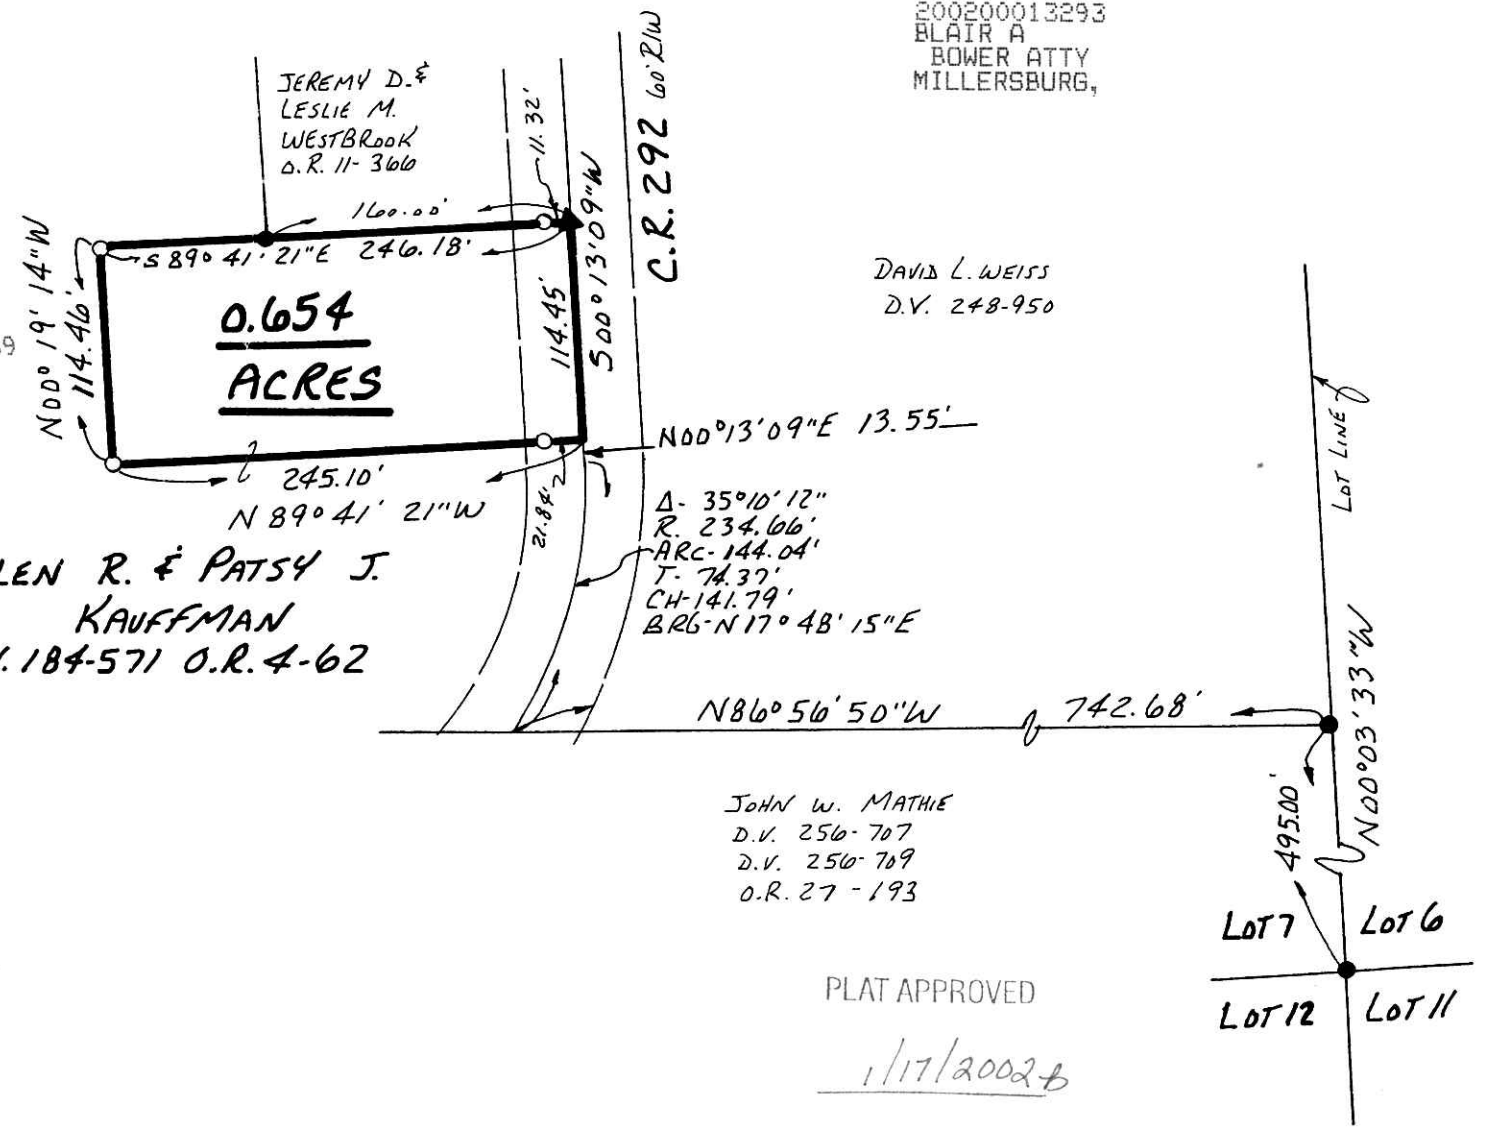 200200013293
BLAIR A
BOWER ATTY
MILLERSBURG,
JEREMY D. &
LESLIE M.
WESTBROOK
O.R. 11-366
11.32'
C.R. 292 60' R/W
160.00'
S 89° 41' 21"E 246.18'
N00° 19' 14"W
114.46'
0.654
ACRES
114.45'
S00° 13' 09"W
DAVID L. WEISS
D.V. 248-950
LOT LINE
N00°13'09"E 13.55'
245.10'
N 89° 41' 21"W
21.84'
Δ- 35°10'12"
R. 234.66'
ARC- 144.04'
T- 74.37'
CH-141.79'
BRG-N17° 48' 15"E
LEN R. & PATSY J.
KAUFFMAN
. 184-571 O.R. 4-62
N86° 56' 50"W 742.68'
N00°03'33"W
495.00'
JOHN W. MATHIE
D.V. 256-707
D.V. 256-709
O.R. 27-193
LOT 7 LOT 6
LOT 12 LOT 11
PLAT APPROVED
1/17/2002